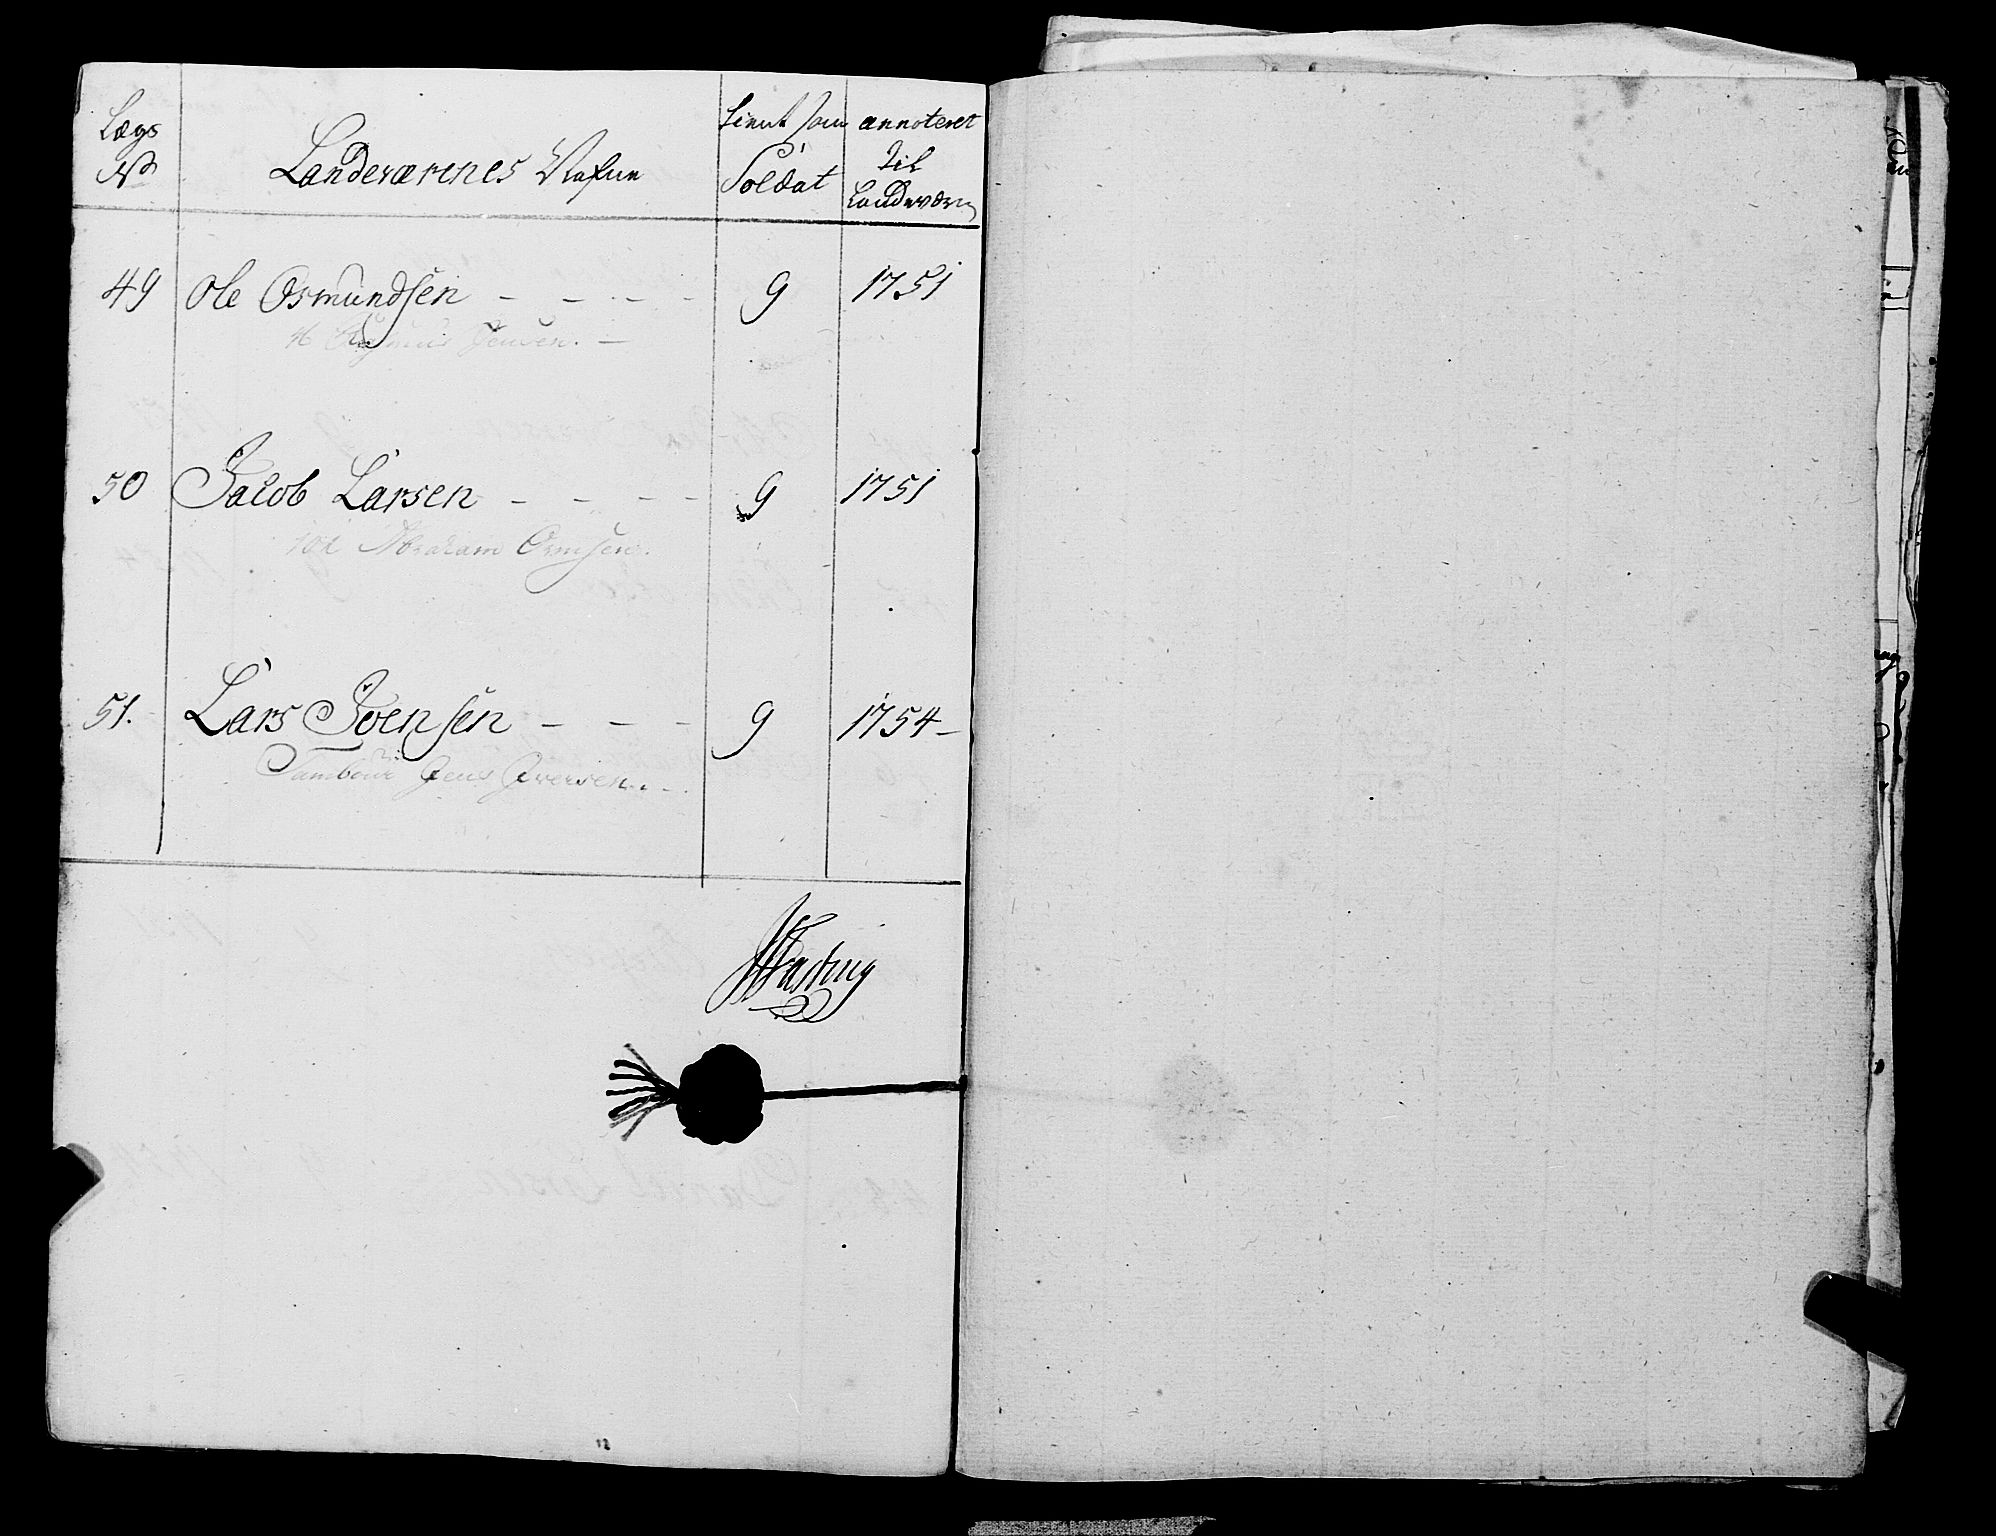 Lægs No
Landeværenes Nafne
tient som Soldat
annoteret til Landeværn
49 Ole Osmundsen - - - - 9 1751
Rasmus Jensen. -
50 Jacob Larsen - - - - 9 1751
101 Abraham Ormsen.
51. Lars Svensen - - - 9 1754 -
Tambour Jens Iversen. - -
12